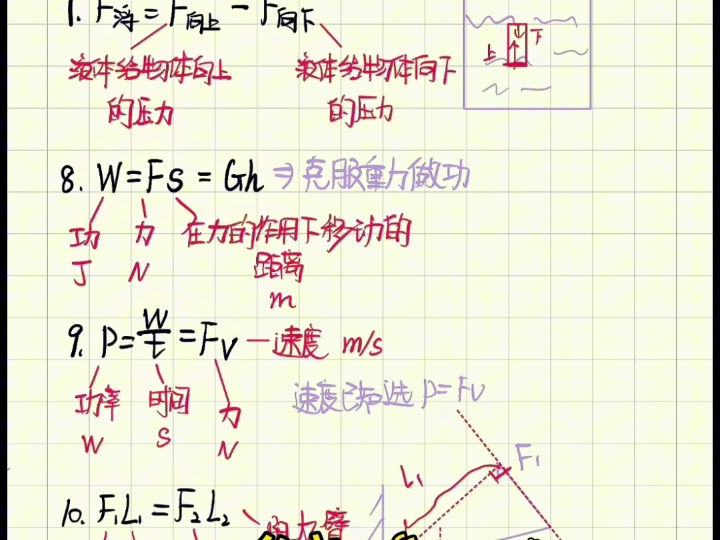 F浮=F向上-F向下
液体给物体向上 液体给物体向下
的压力 的压力
上 下
8. W=Fs=Gh ⇒克服重力做功
功 力 在力的作用下移动的
J N 距离
m
9. P=W/t=Fv—速度 m/s
功率 时间 力 速度已知选P=Fv
W S N
L₁ F₁
10. F₁L₁=F₂L₂
力臂